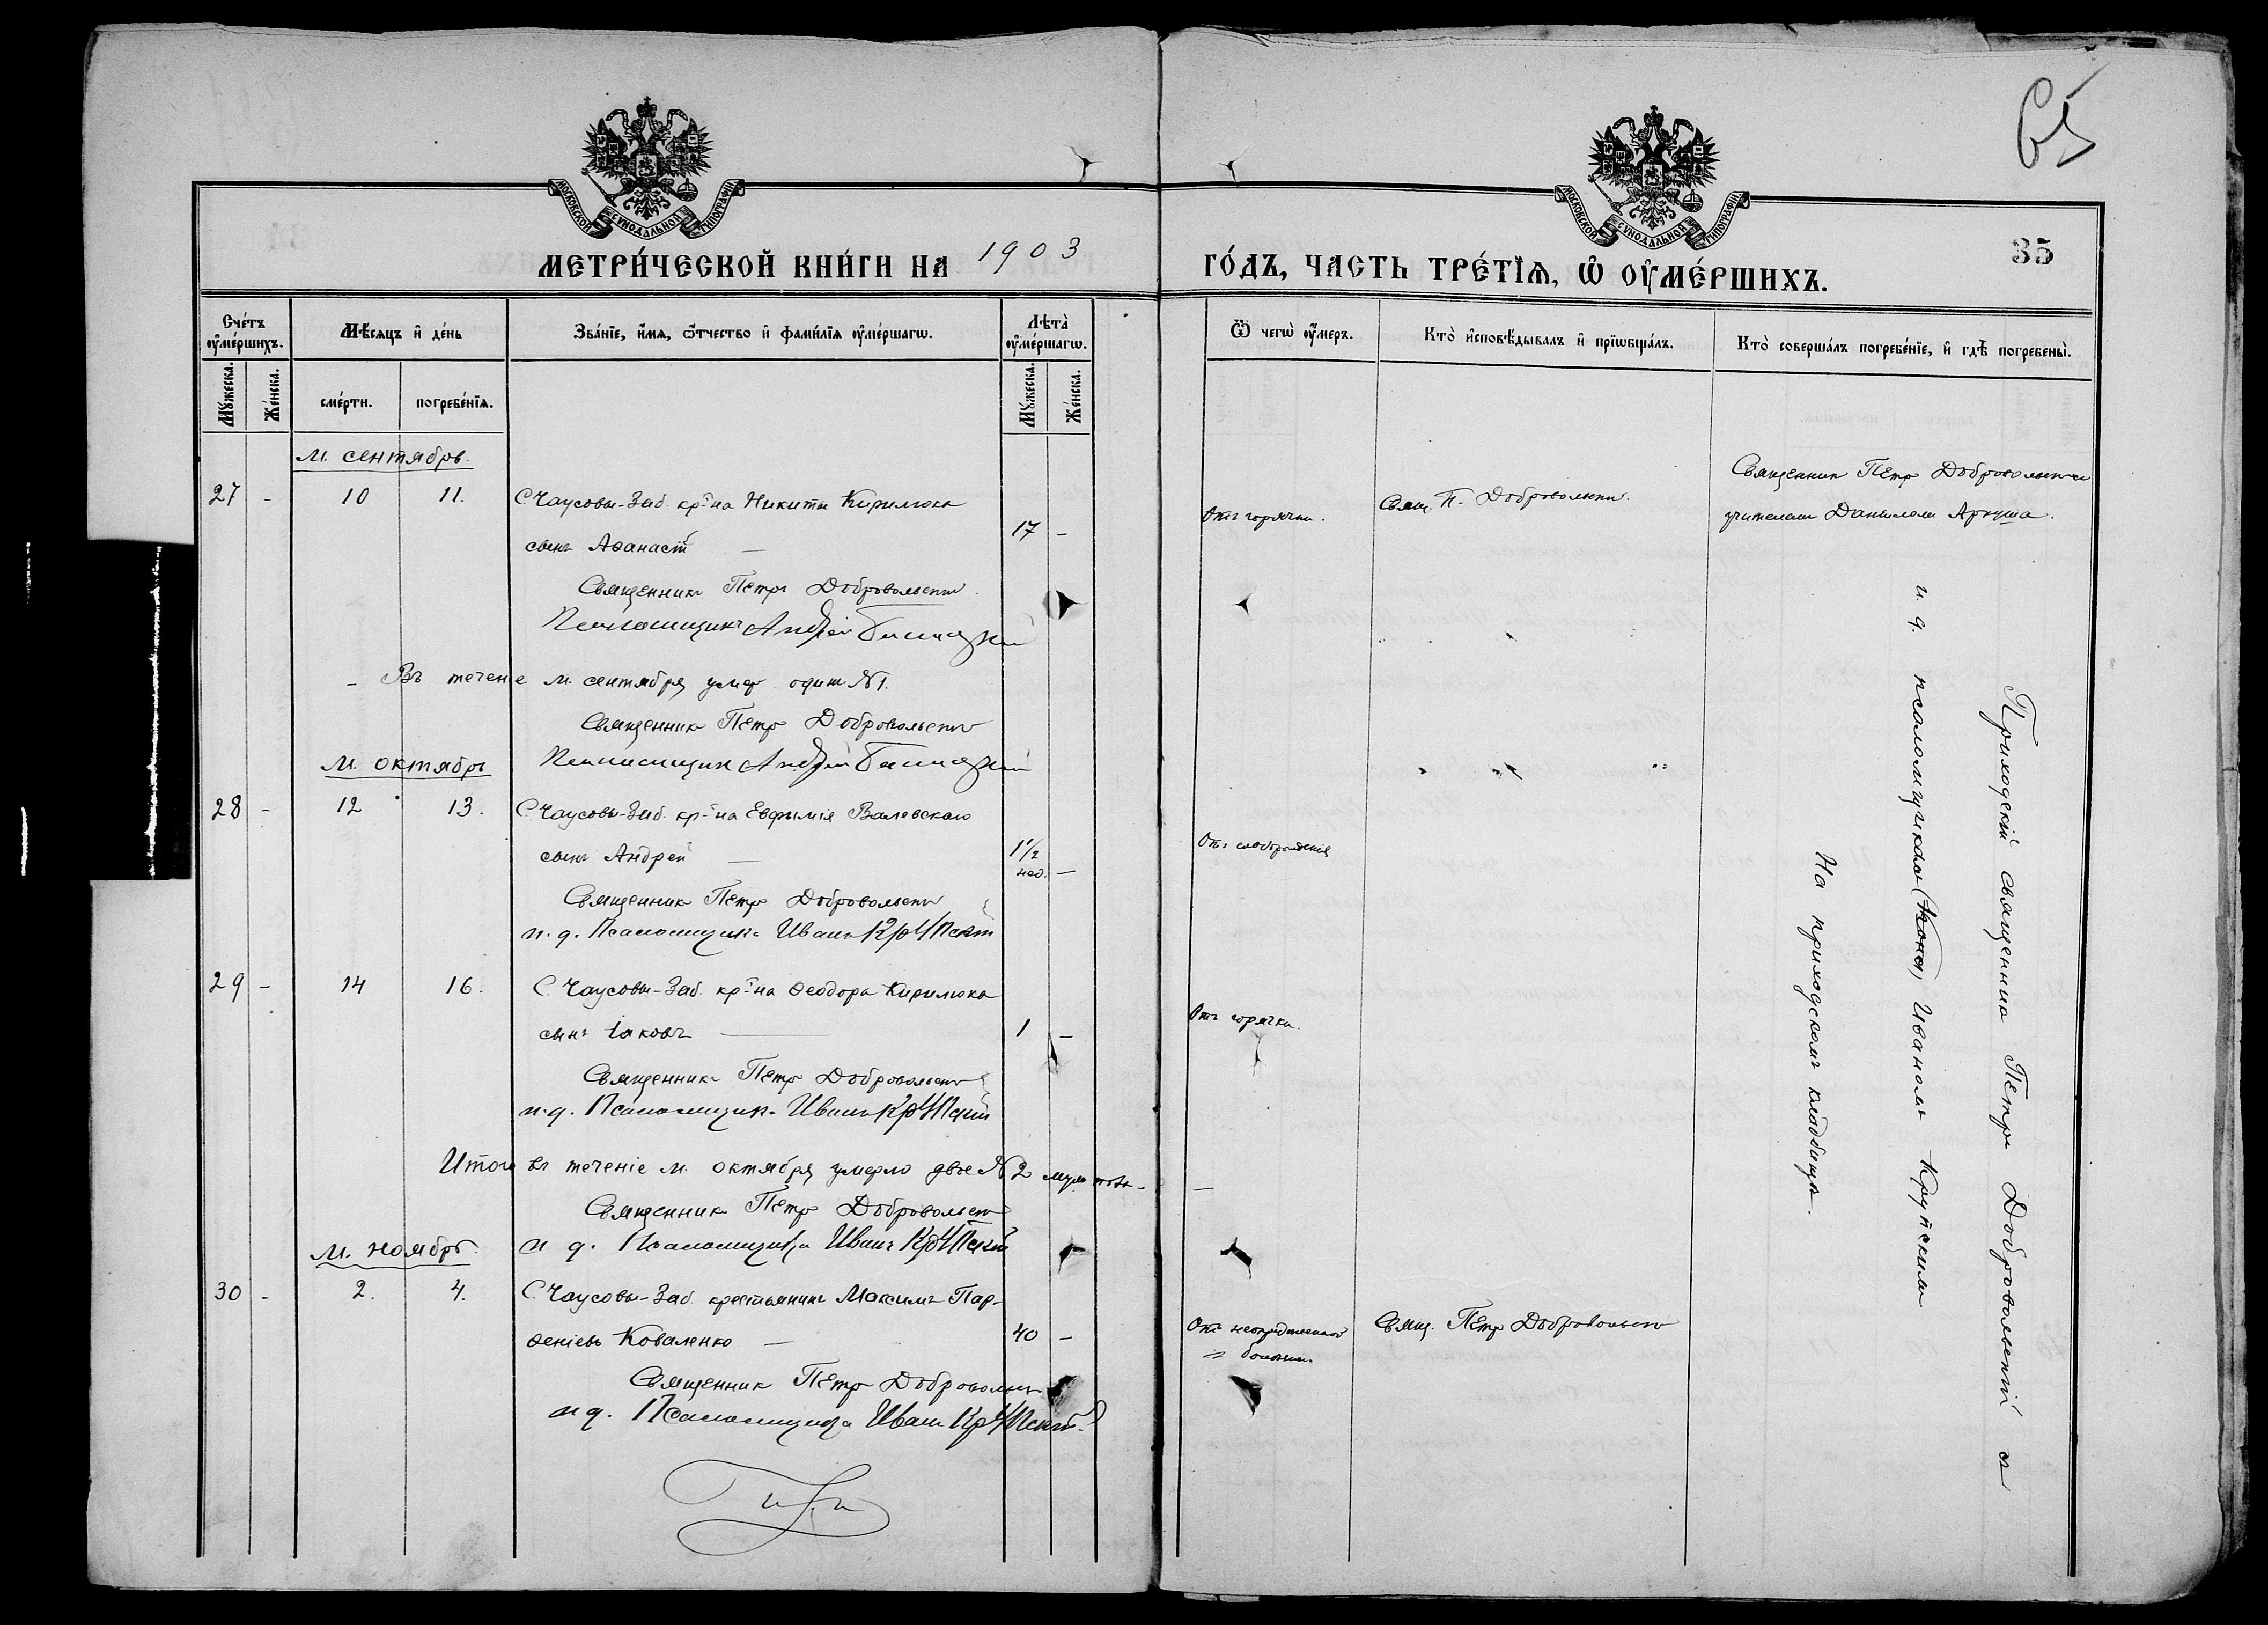 65
МОСКОВСКОЙ СѴНОДАЛЬНОЙ ТИПОГРАФІИ
МОСКОВСКОЙ СѴНОДАЛЬНОЙ ТИПОГРАФІИ
МЕТРИ́ЧЕСКОЙ КНИ́ГИ НА 1903 ГО́ДЪ, ЧАСТЬ ТРЕ́ТІѦ, Ѡ ОУМЕ́РШИХЪ.
35
Сче́тъ оумершихъ.
Мѣсяцъ и де́нь
Зва́нїе, и́мѧ, ѿтчество и фами́лїѧ оуме́ршагѡ.
Лѣта̀ оуме́ршагѡ.
Ѿ чегѡ̀ оу́меръ.
Кто̀ исповѣ́дывалъ и прїѡбща́лъ.
Кто̀ соверша́лъ погребе́нїе, и гдѣ̀ погребены̀.
Мꙋ́жеска.
Же́нска.
сме́рти.
погребе́нїѧ.
Мꙋ́жеска.
Же́нска.
м. сентябрь.
27 - 10 11. С Чаусовы-Заб. кр-на Никиты Кирилюка
сынъ Аѳанасій — 17 -
Отъ горячки.
Свящ. П. Добровольскій.
Священник Петръ Добровольскій
учителем Данилом Аркуша.
Священникъ Петръ Добровольскій
Псаломщикъ Андрей
- Въ теченіе м. сентября умер один №1.
Священникъ Петръ Добровольскій
Псаломщикъ Андрей
м. октябрь
28 - 12 13. С Чаусовы-Заб. кр-на Евфимія Валевскаго
сынъ Андрей — 1½ нед. —
Отъ слаборожденія
Священникъ Петръ Добровольскій
и. д. Псаломщика Иванъ Крупскій
29 - 14 16. С. Чаусовы-Заб. кр-на Ѳеодора Кирилюка
сынъ Іаковъ — 1 -
Отъ горячки.
Священникъ Петръ Добровольскій
и. д. Псаломщика Иванъ Крупскій
Итого въ теченіе м. октября умерло двое №2 муж. пола —
Священникъ Петръ Добровольскій
и д. Псаломщика Иванъ Крупскій
м. ноябрь.
30 - 2. 4. С Чаусовы-Заб. крестьянинъ Максимъ Пар-
ѳеніевъ Коваленко — 40 -
Отъ
болезни
Свящ. Петръ Добровольскій
Священникъ Петръ Добровольскій
и д. Псаломщика Иванъ Крупскій
Приходскій священникъ Петръ Добровольскій съ
и. д. псаломщикомъ Иваномъ Крупскимъ
На приходскомъ кладбищѣ.